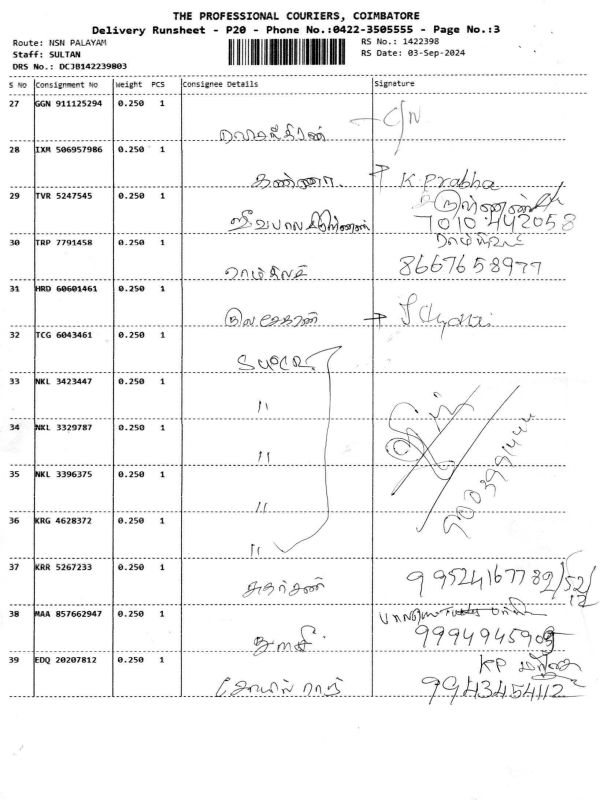 THE PROFESSIONAL COURIERS, COIMBATORE
Delivery Runsheet - P20 - Phone No.:0422-3505555 - Page No.:3
Route: NSN PALAYAM RS No.: 1422398
Staff: SULTAN RS Date: 03-Sep-2024
DRS No.: DCJB142239803
S No Consignment No Weight PCS Consignee Details Signature
27 GGN 911125294 0.250 1
C/N
28 IXM 506957986 0.250 1
கண்ணா. K Prabha
29 TVR 5247545 0.250 1
ஜீவபாலகிருஷ்ணன் 7010 442058
30 TRP 7791458 0.250 1
8667658977
31 HRD 60601461 0.250 1
குலசேகரன்
32 TCG 6043461 0.250 1
33 NKL 3423447 0.250 1
"
34 NKL 3329787 0.250 1
"
35 NKL 3396375 0.250 1
"
36 KRG 4628372 0.250 1
"
9003991444
37 KRR 5267233 0.250 1
சுதர்சன் 9952416778
38 MAA 857662947 0.250 1
39 EDQ 20207812 0.250 1
KP
9943454112